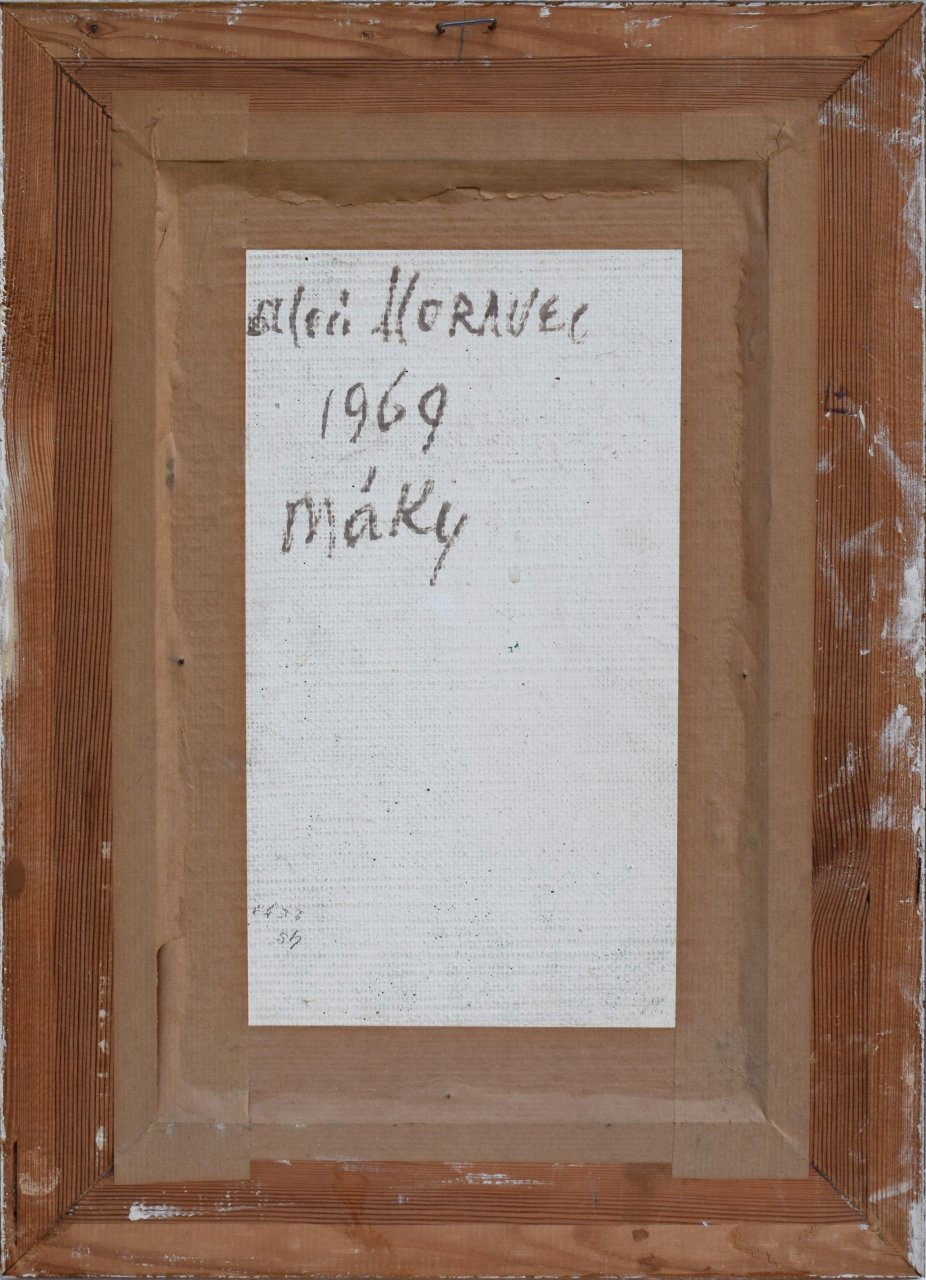 Alois MORAVEC
1969
Máky